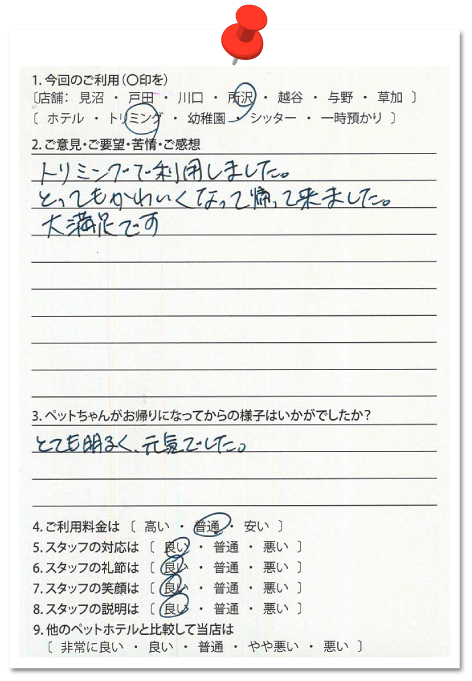 1. 今回のご利用(〇印を)
〔店舗： 見沼 ・ 戸田 ・ 川口 ・ 所沢 ・ 越谷 ・ 与野 ・ 草加 〕
〔 ホテル ・ トリミング ・ 幼稚園 ・ シッター ・ 一時預かり 〕
2. ご意見・ご要望・苦情・ご感想
トリミングで利用しました。
とってもかわいくなって帰って来ました。
大満足です
3. ペットちゃんがお帰りになってからの様子はいかがでしたか？
とても明るく、元気でした。
4. ご利用料金は 〔 高い ・ 普通 ・ 安い 〕
5. スタッフの対応は 〔 良い ・ 普通 ・ 悪い 〕
6. スタッフの礼節は 〔 良い ・ 普通 ・ 悪い 〕
7. スタッフの笑顔は 〔 良い ・ 普通 ・ 悪い 〕
8. スタッフの説明は 〔 良い ・ 普通 ・ 悪い 〕
9. 他のペットホテルと比較して当店は
〔 非常に良い ・ 良い ・ 普通 ・ やや悪い ・ 悪い 〕